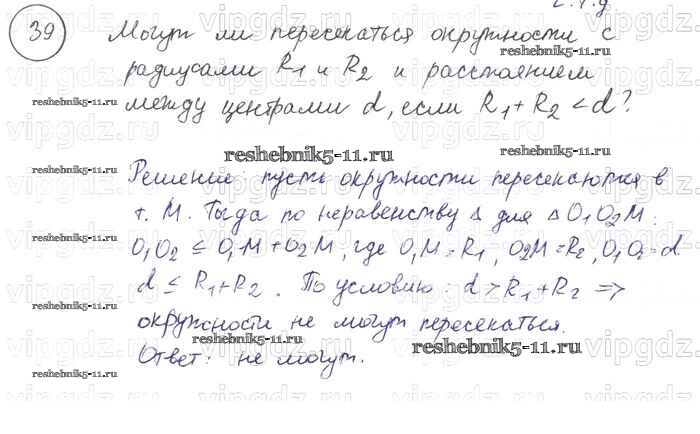 ч.т.д
39 Могут ли пересекаться окружности с
радиусами R1 и R2 и расстоянием
между центрами d, если R1 + R2 < d?
Решение: пусть окружности пересекаются в
т. M. Тогда по неравенству Δ для Δ O1O2M:
O1O2 ≤ O1M + O2M, где O1M = R1, O2M = R2, O1O2 = d.
d ≤ R1 + R2. По условию: d > R1 + R2 =>
окружности не могут пересекаться.
Ответ: не могут.
reshebnik5-11.ru
reshebnik5-11.ru
reshebnik5-11.ru
reshebnik5-11.ru
reshebnik5-11.ru
reshebnik5-11.ru
reshebnik5-11.ru
reshebnik5-11.ru
reshebnik5-11.ru
vipgdz.ru